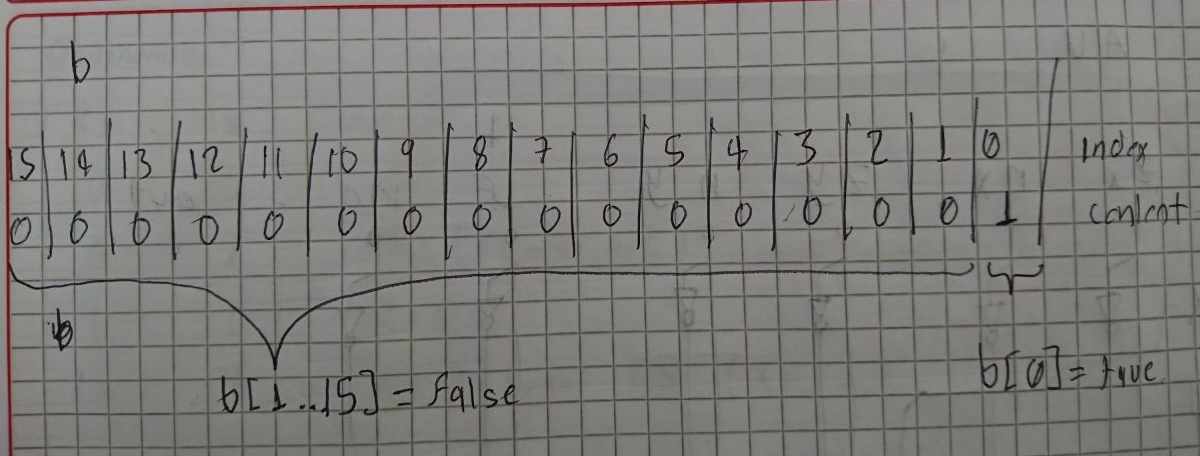 b
15 14 13 12 11 10 9 8 7 6 5 4 3 2 1 0 index
0 0 0 0 0 0 0 0 0 0 0 0 0 0 0 1
b
b[1..15] = false
b[0] = true